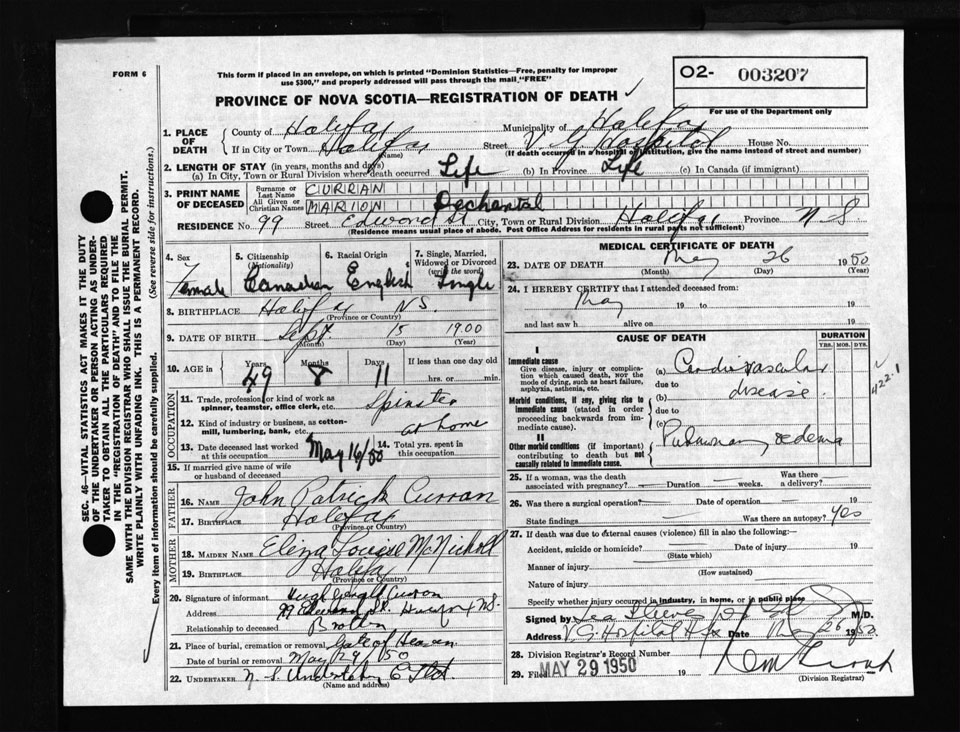 FORM 6
This form if placed in an envelope, on which is printed "Dominion Statistics—Free, penalty for improper
use $300," and properly addressed will pass through the mail "FREE"
PROVINCE OF NOVA SCOTIA—REGISTRATION OF DEATH ✓
O2- 003207
For use of the Department only
SEC. 46—VITAL STATISTICS ACT MAKES IT THE DUTY
OF THE UNDERTAKER OR PERSON ACTING AS UNDER-
TAKER TO OBTAIN ALL THE PARTICULARS REQUIRED
IN THE "REGISTRATION OF DEATH" AND TO FILE THE
SAME WITH THE DIVISION REGISTRAR WHO SHALL ISSUE THE BURIAL PERMIT.
WRITE PLAINLY WITH UNFADING INK. THIS IS A PERMANENT RECORD.
Every item of information should be carefully supplied. (See reverse side for instructions.)
1. PLACE OF DEATH County of Halifax Municipality of Halifax
If in City or Town Halifax (Name) Street V. G. Hospital House No.
(If death occurred in a hospital or institution, give the name instead of street and number)
2. LENGTH OF STAY (in years, months and days)
(a) In City, Town or Rural Division where death occurred Life (b) In Province Life (c) In Canada (if immigrant)
3. PRINT NAME OF DECEASED
Surname or Last Name CURRAN
All Given or Christian Names MARION Dechantal
RESIDENCE No. 99 Street Edward St City, Town or Rural Division Halifax Province N S
(Residence means usual place of abode. Post Office Address for residents in rural parts not sufficient)
4. Sex Female
5. Citizenship (Nationality) Canadian
6. Racial Origin English
7. Single, Married, Widowed or Divorced (write the word) Single
8. BIRTHPLACE Halifax N.S.
(Province or Country)
9. DATE OF BIRTH Sept 15 1900
(Month) (Day) (Year)
10. AGE in Years 49 Months 8 Days 11 If less than one day old
hrs. or min.
OCCUPATION
11. Trade, profession or kind of work as
spinner, teamster, office clerk, etc. Spinster
12. Kind of industry or business, as cotton-
mill, lumbering, bank, etc. at home
13. Date deceased last worked
at this occupation May 16/50
14. Total yrs. spent in
this occupation
15. If married give name of wife
or husband of deceased
FATHER
16. NAME John Patrick Curran
17. BIRTHPLACE Halifax
(Province or Country)
MOTHER
18. MAIDEN NAME Eliza Louise McNicholl
19. BIRTHPLACE Halifax
(Province or Country)
20. Signature of informant Hugh Curran
Address 99 Edward St. Halifax N.S.
Relationship to deceased Brother
21. Place of burial, cremation or removal Gate of Heaven
Date of burial or removal May 29/50
22. UNDERTAKER N. S. Undertaking C Ltd.
(Name and address)
MEDICAL CERTIFICATE OF DEATH
23. DATE OF DEATH May 26 1950
(Month) (Day) (Year)
24. I HEREBY CERTIFY that I attended deceased from:
May 19 to 19
and last saw h alive on 19
CAUSE OF DEATH
DURATION
YRS. MOS. DYS.
I
Immediate cause
Give disease, injury or complica-
tion which caused death, not the
mode of dying, such as heart failure,
asphyxia, asthenia, etc.
(a) Cardiovascular
due to
Morbid conditions, if any, giving rise to
immediate cause (stated in order
proceeding backwards from im-
mediate cause).
(b) disease.
due to
(c)
II
Other morbid conditions (if important)
contributing to death but not
causally related to immediate cause.
Pulmonary oedema
✓ 422.1
25. If a woman, was the death
associated with pregnancy? — Duration — weeks. Was there a delivery? —
26. Was there a surgical operation? — Date of operation — 19
State findings — Was there an autopsy? Yes
27. If death was due to external causes (violence) fill in also the following:—
Accident, suicide or homicide? Date of injury 19
(State which)
Manner of injury
(How sustained)
Nature of injury
Specify whether injury occurred in industry, in home, or in public place
Signed by M.D.
Address V.G. Hospital Hfx Date May 26 1950.
28. Division Registrar's Record Number
29. Filed MAY 29 1950 19
(Division Registrar)